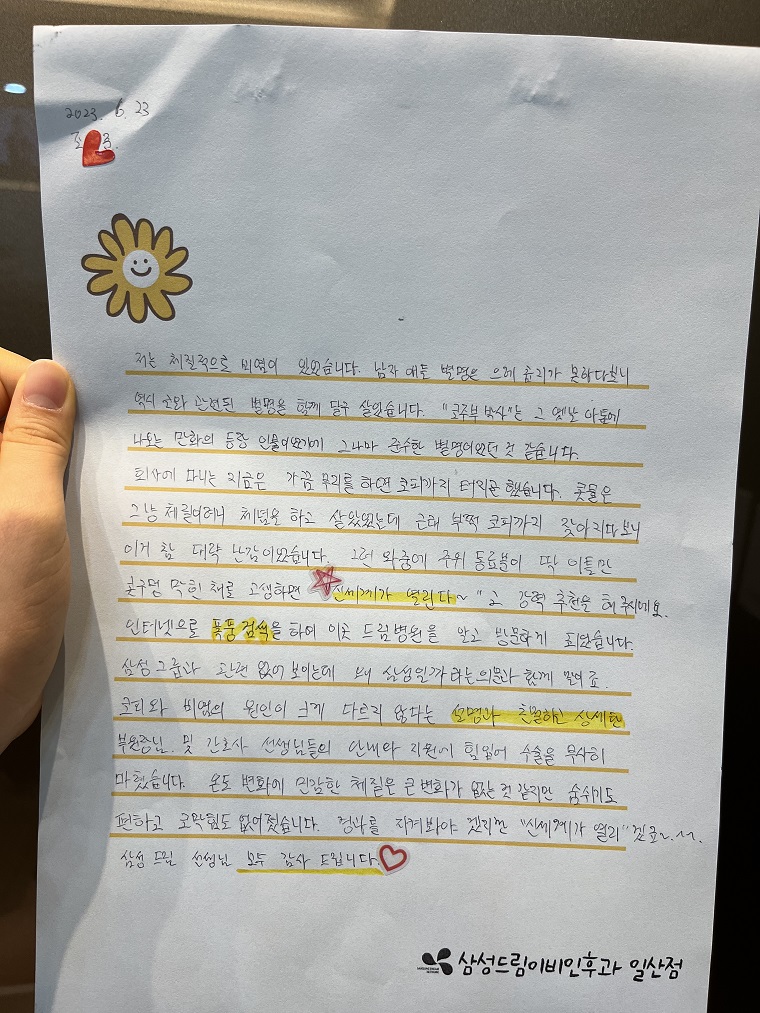 2023. 6. 23
저는 체질적으로 비염이 있었습니다. 남자 애들 별명은 으레 추리가 뻔하다보니
역시 코와 관련된 별명을 함께 달구 살았습니다. "코주부 박사"는 그 옛날 아톰에
나오는 만화의 등장 인물이었기에 그나마 준수한 별명이었던 것 같습니다.
회사에 다니는 지금은 가끔 무리를 하면 코피까지 터지곤 했습니다. 콧물은
그냥 체질이려니 체념을 하고 살았었는데 근래 부쩍 코피까지 잦아지다보니
이거 참 대략 난감이었습니다. 그런 와중에 주위 동료분이 딱 이틀만
콧구멍 막힌 채로 고생하면 "신세계가 열린다~"고 강력 추천을 해 주시네요.
인터넷으로 폭풍검색을 하여 이곳 드림병원을 알고 방문하게 되었습니다.
삼성그룹과 관련 없어 보이는데 왜 삼성일까라는 의문과 함께 말이죠.
코피와 비염의 원인이 크게 다르지 않다는 설명과 친절하고 상세한
부원장님. 및 간호사 선생님들의 안내와 지원에 힘입어 수술을 무사히
마쳤습니다. 온도 변화에 민감한 체질은 큰 변화가 없는 것 같지만 숨쉬기도
편하고 코막힘도 없어졌습니다. 경과를 지켜봐야 겠지만 "신세계가 열리"겠죠~.~.
삼성 드림 선생님 모두 감사 드립니다.
삼성드림이비인후과 일산점